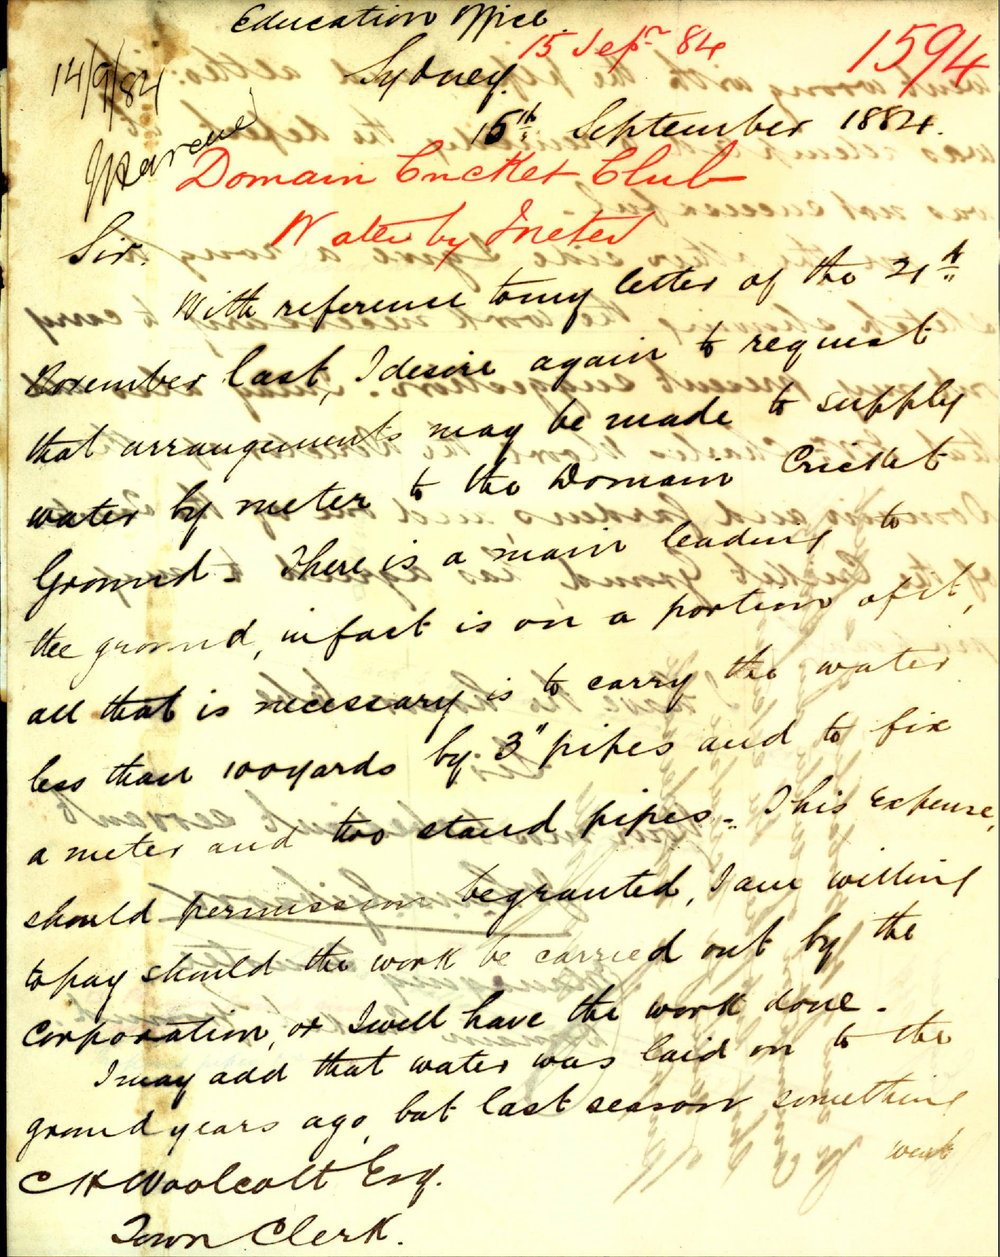 Education Office.
15 Sepr 84
1594
14/9/84
Sydney.
15th September 1884.
Domain Cricket Club
Water by Meter
Sir.
With reference to my letter of the 21st
November last, I desire again to request
that arrangements may be made to supply
water by meter to the Domain Cricket
Ground - There is a main leading to
the ground, in fact is on a portion of it,
all that is necessary is to carry the water
less than 100 yards by 3" pipes and to fix
a meter and two stand pipes. This expense,
should permission be granted, I am willing
to pay should the work be carried out by the
Corporation, or I will have the work done.
I may add that water was laid on to the
ground years ago, but last season something
went
C H Woolcott Esq.
Town Clerk.